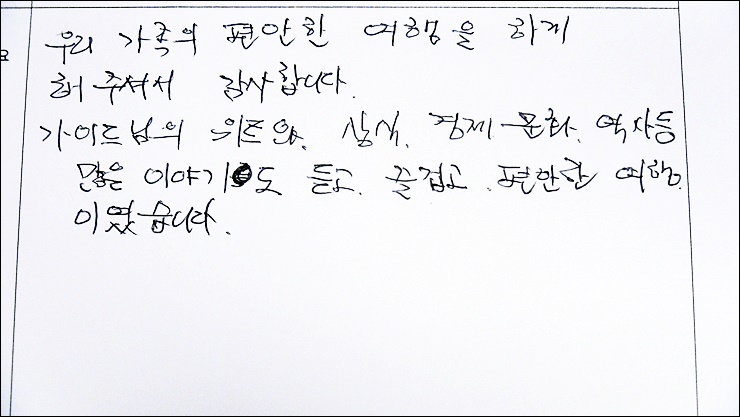 우리 가족의 편안한 여행을 하게
해 주셔서 감사합니다.
가이드님의 상식, 경제 문화, 역사등
많은 이야기도 듣고, 즐겁고, 편안한 여행
이였습니다.